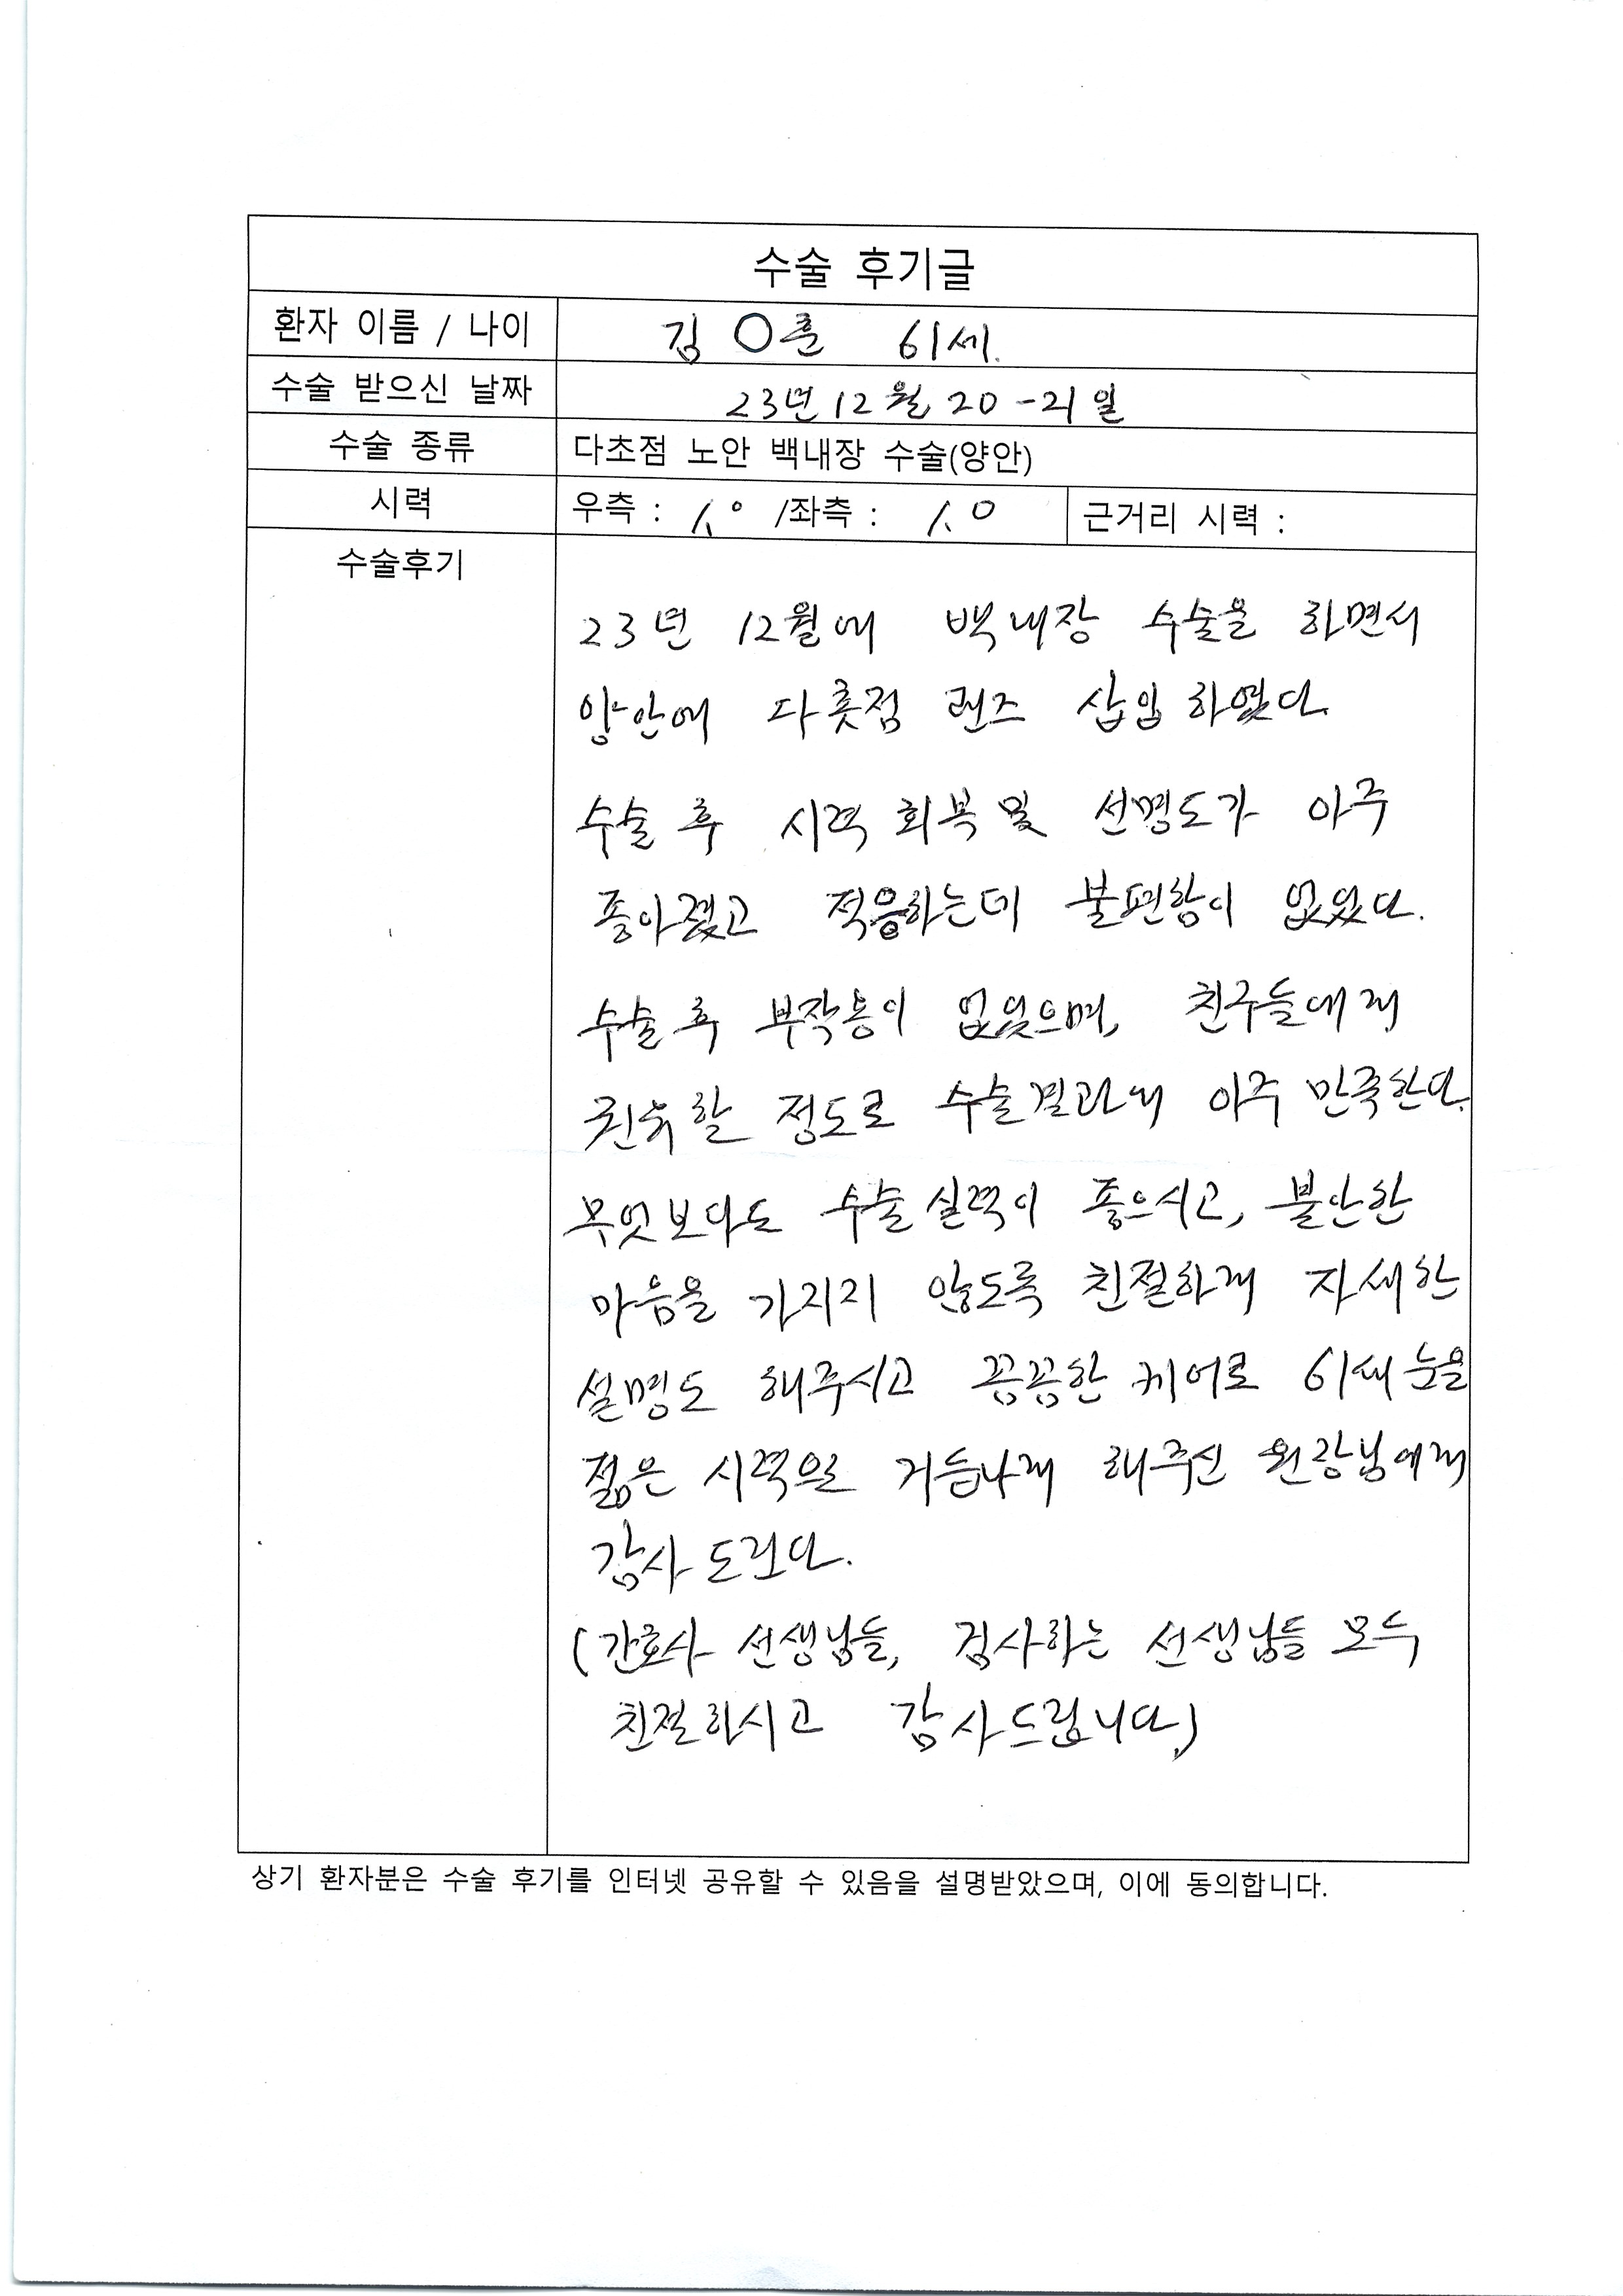 수술 후기글
환자 이름 / 나이 김 ○훈 61세.
수술 받으신 날짜 23년 12월 20-21일
수술 종류 다초점 노안 백내장 수술(양안)
시력 우측 : 1.0 /좌측 : 1.0 근거리 시력 :
수술후기
23년 12월에 백내장 수술을 하면서
양안에 다촛점 렌즈 삽입 하였다.
수술 후 시력 회복 및 선명도가 아주
좋아졌고 적응하는데 불편함이 없었다.
수술 후 부작용이 없었으며, 친구들에게
권유할 정도로 수술결과에 아주 만족한다.
무엇보다도 수술 실력이 좋으시고, 불안한
마음을 가지지 않도록 친절하게 자세한
설명도 해주시고 꼼꼼한 케어로 61세 눈을
젊은 시력으로 거듭나게 해주신 원장님에게
감사 드린다.
(간호사 선생님들, 검사하는 선생님들 모두
친절하시고 감사드립니다.)
상기 환자분은 수술 후기를 인터넷 공유할 수 있음을 설명받았으며, 이에 동의합니다.